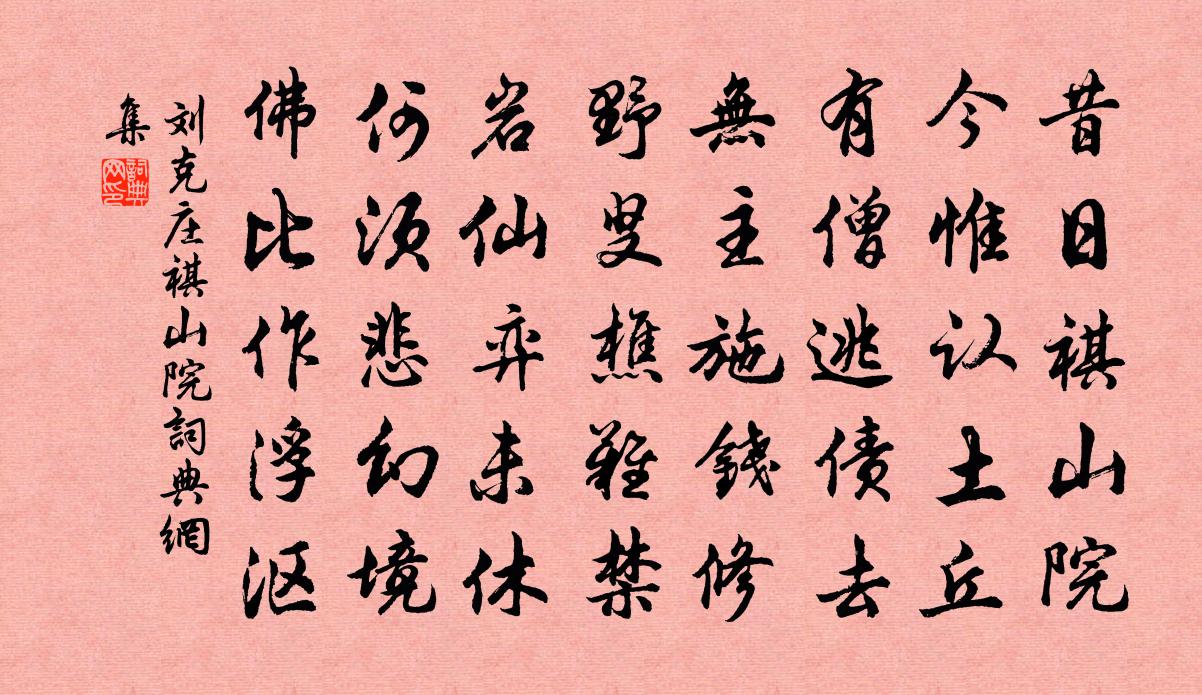 昔日祺山院
今惟认土丘
有僧逃债去
無主施錢修
野叟樵難禁
岩仙弈未休
何须悲幻境
佛比作浮沤
刘克庄祺山院詞典網
集
詞典網印